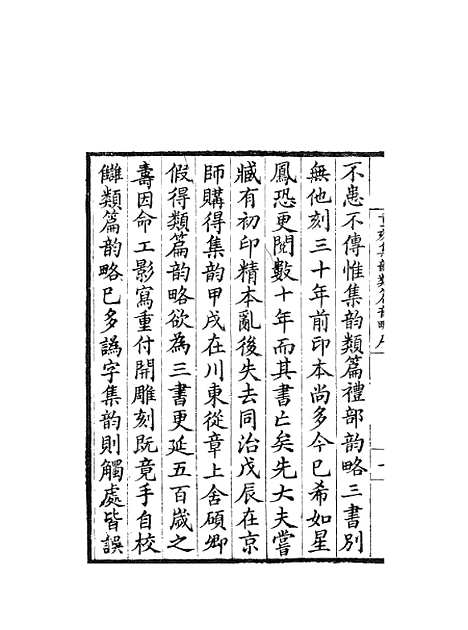 不患不傳惟集韵類篇禮部韵略三書別
無他刻三十年前印本尚多今已希如星
鳳恐更閱數十年而其書亡矣先大夫嘗
臧有初印精本亂後失去同治戊辰在京
師購得集韵甲戌在川東從章上舍碩卿
假得類篇韵略欲為三書更延五百歲之
壽因命工影寫重付開雕刻既竟手自校
讎類篇韵略已多譌字集韵則觸處皆誤